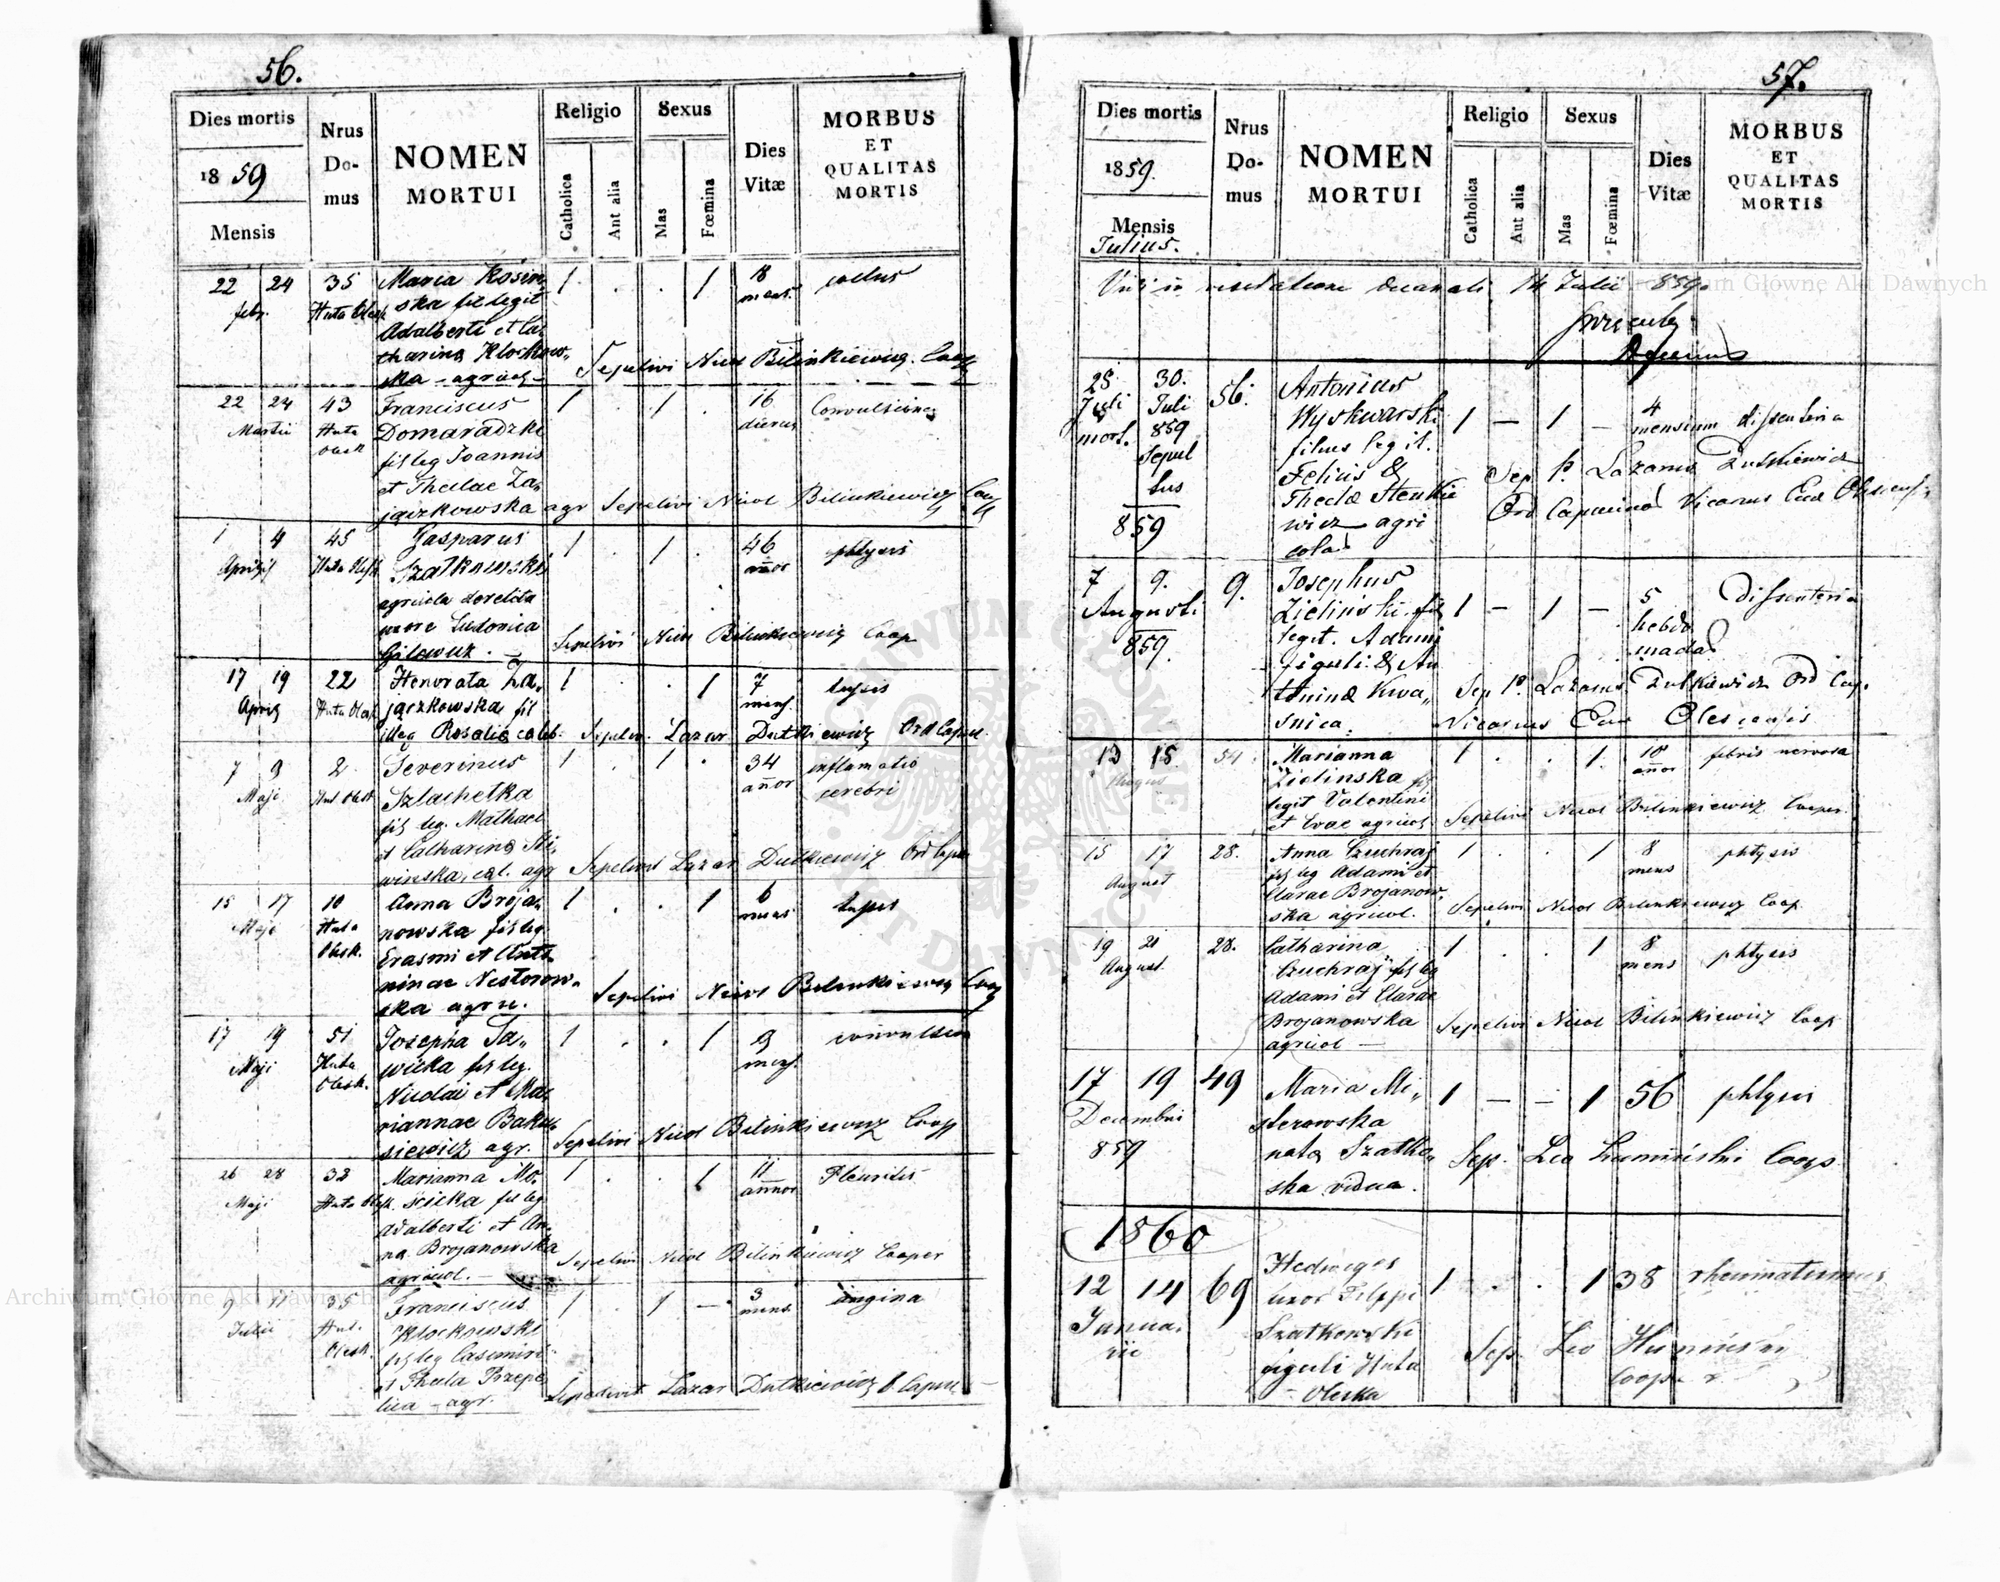 56.
Dies mortis
1859
Mensis
Nrus Do- mus
NOMEN MORTUI
Religio
Catholica
Aut alia
Sexus
Mas
Fœmina
Dies Vitæ
MORBUS ET QUALITAS MORTIS
22 24 35 Maria Kosin, 1 . . 1 18 mens.
febr. Huta Olesk ska fil legit
Adalberti et Ca,
tharina Klockow,
ska - agricol - Sepelivi Nicol Bilinkiewicz Coop
22 24 43 Franciscus 1 . 1 . 16 dierum Convulsiones
Martii Huta Olesk Domaradzki
fil leg Joannis
et Theclae Za,
jączkowska agr Sepelivi Nicol Bilinkiewicz Coop
1 4 45 Gasparus 1 . 1 . 46 annor phtysis
Aprilis Huta Olesk Szatkowski
agricola derelicta
uxore Ludovica
Gilewicz . - Sepelivi Nicol Bilinkiewicz Coop
17 19 22 Honorata Za, 1 . . 1 7 mens. tussis
Aprilis Huta Olesk jączkowska fil
illeg Rosalia caleb. Sepeliv. Lazar Dutkiewicz Ord Capuc.
7 9 2 Severinus 1 . 1 . 34 annor inflamatio cerebri
Maji Hut Olesk Szlachetka
fil leg. Mathaei
et Catharina
winska, cal. agr Sepelivit Lazar Dutkiewicz Ord Capuc
15 17 10 Anna Broja, 1 . . 1 6 mens tussis
Maji Huta Olesk. nowska fil leg
Erasmi et Anto,
ninae Nestorow,
ska agric. Sepelivi Nicol Bilinkiewicz Coop
17 19 51 Josepha Sa, 1 . . 1 9 mens. convulsio
Maji Huta Olesk. wicka fil leg.
Nicolai et Ma,
riannae Baku,
siewicz agr. Sepelivi Nicol Bilinkiewicz Coop
26 28 32 Marianna Mo, 1 . . 1 11 annor Pleuritis
Maji Huta Olesk. scicka fil leg
Adalberti et An,
na Brojanowska
agricol. - Sepelivi Nicol Bilinkiewicz Cooper
9 11 35 Franciscus 1 . 1 - 3 mens angina
Julii Hut. Olesk. Klockowski
fil leg Casimiri
et Thecla Przepe
lica - agr. Sepelivit Lazar Dutkiewicz O. Capuc -
57.
Dies mortis
1859.
Mensis
Julius.
Nrus Do- mus
NOMEN MORTUI
Religio
Catholica
Aut alia
Sexus
Mas
Fœmina
Dies Vitæ
MORBUS ET QUALITAS MORTIS
in visitatione decanali 14 Julii 859.
Decanus
28 30. 56. Antonius
Juli Juli Wyskwarski 1 - 1 - 4 mensium dissenteria
mort. 859 filius legit.
Sepul Felicis & Sep. P. Lazarus Dutkiewicz
tus Theclæ Stenkie Ord Capucinor Vicarius Olescensis
859 wicz - agri
colar
7 9. 9. Josephus
Augusti Zielinski fil 1 - 1 - 5 hebdomadar Dissenteria
859. legit. Adami
figuli. & An
toninæ Kwa, Sep P. Lazarus Dutkiewicz Ord Cap.
snica. Vicarius Olescensis
13 15. 54. Marianna 1 . . 1. 10 annor febris nervosa
August Zielinska fil
legit Valentini
et Evae agricol. Sepelivi Nicol Bilinkiewicz Cooper.
15 17 28. Anna Czuchraj 1 . . 1 8 mens phtysis
August fil leg Adami et
Clarae Brojanow,
ska agricol. Sepelivi Nicol Bilinkiewicz Coop.
19 21 28. Catharina 1 . . 1 8 mens phtysis
August. Czuchraj fil leg
Adami et Clarae
Brojanowska Sepelivi Nicol Bilinkiewicz Coop
agricol -
17 19 49 Maria Mi, 1 - - 1 56 phtysis
Decembri sterowska
859 nata Szatko, Sep. Leo Coop
ska vidua.
1860
12 14 69 Hedviges 1 . . 1 38 rheumatismus
Januarii uxor Filippi
Szatkowski
figuli Huta Sep. Leo
- Oleska Cooper.
Archiwum Główne Akt Dawnych
Archiwum Główne Akt Dawnych
ARCHIWUM GŁÓWNE AKT DAWNYCH